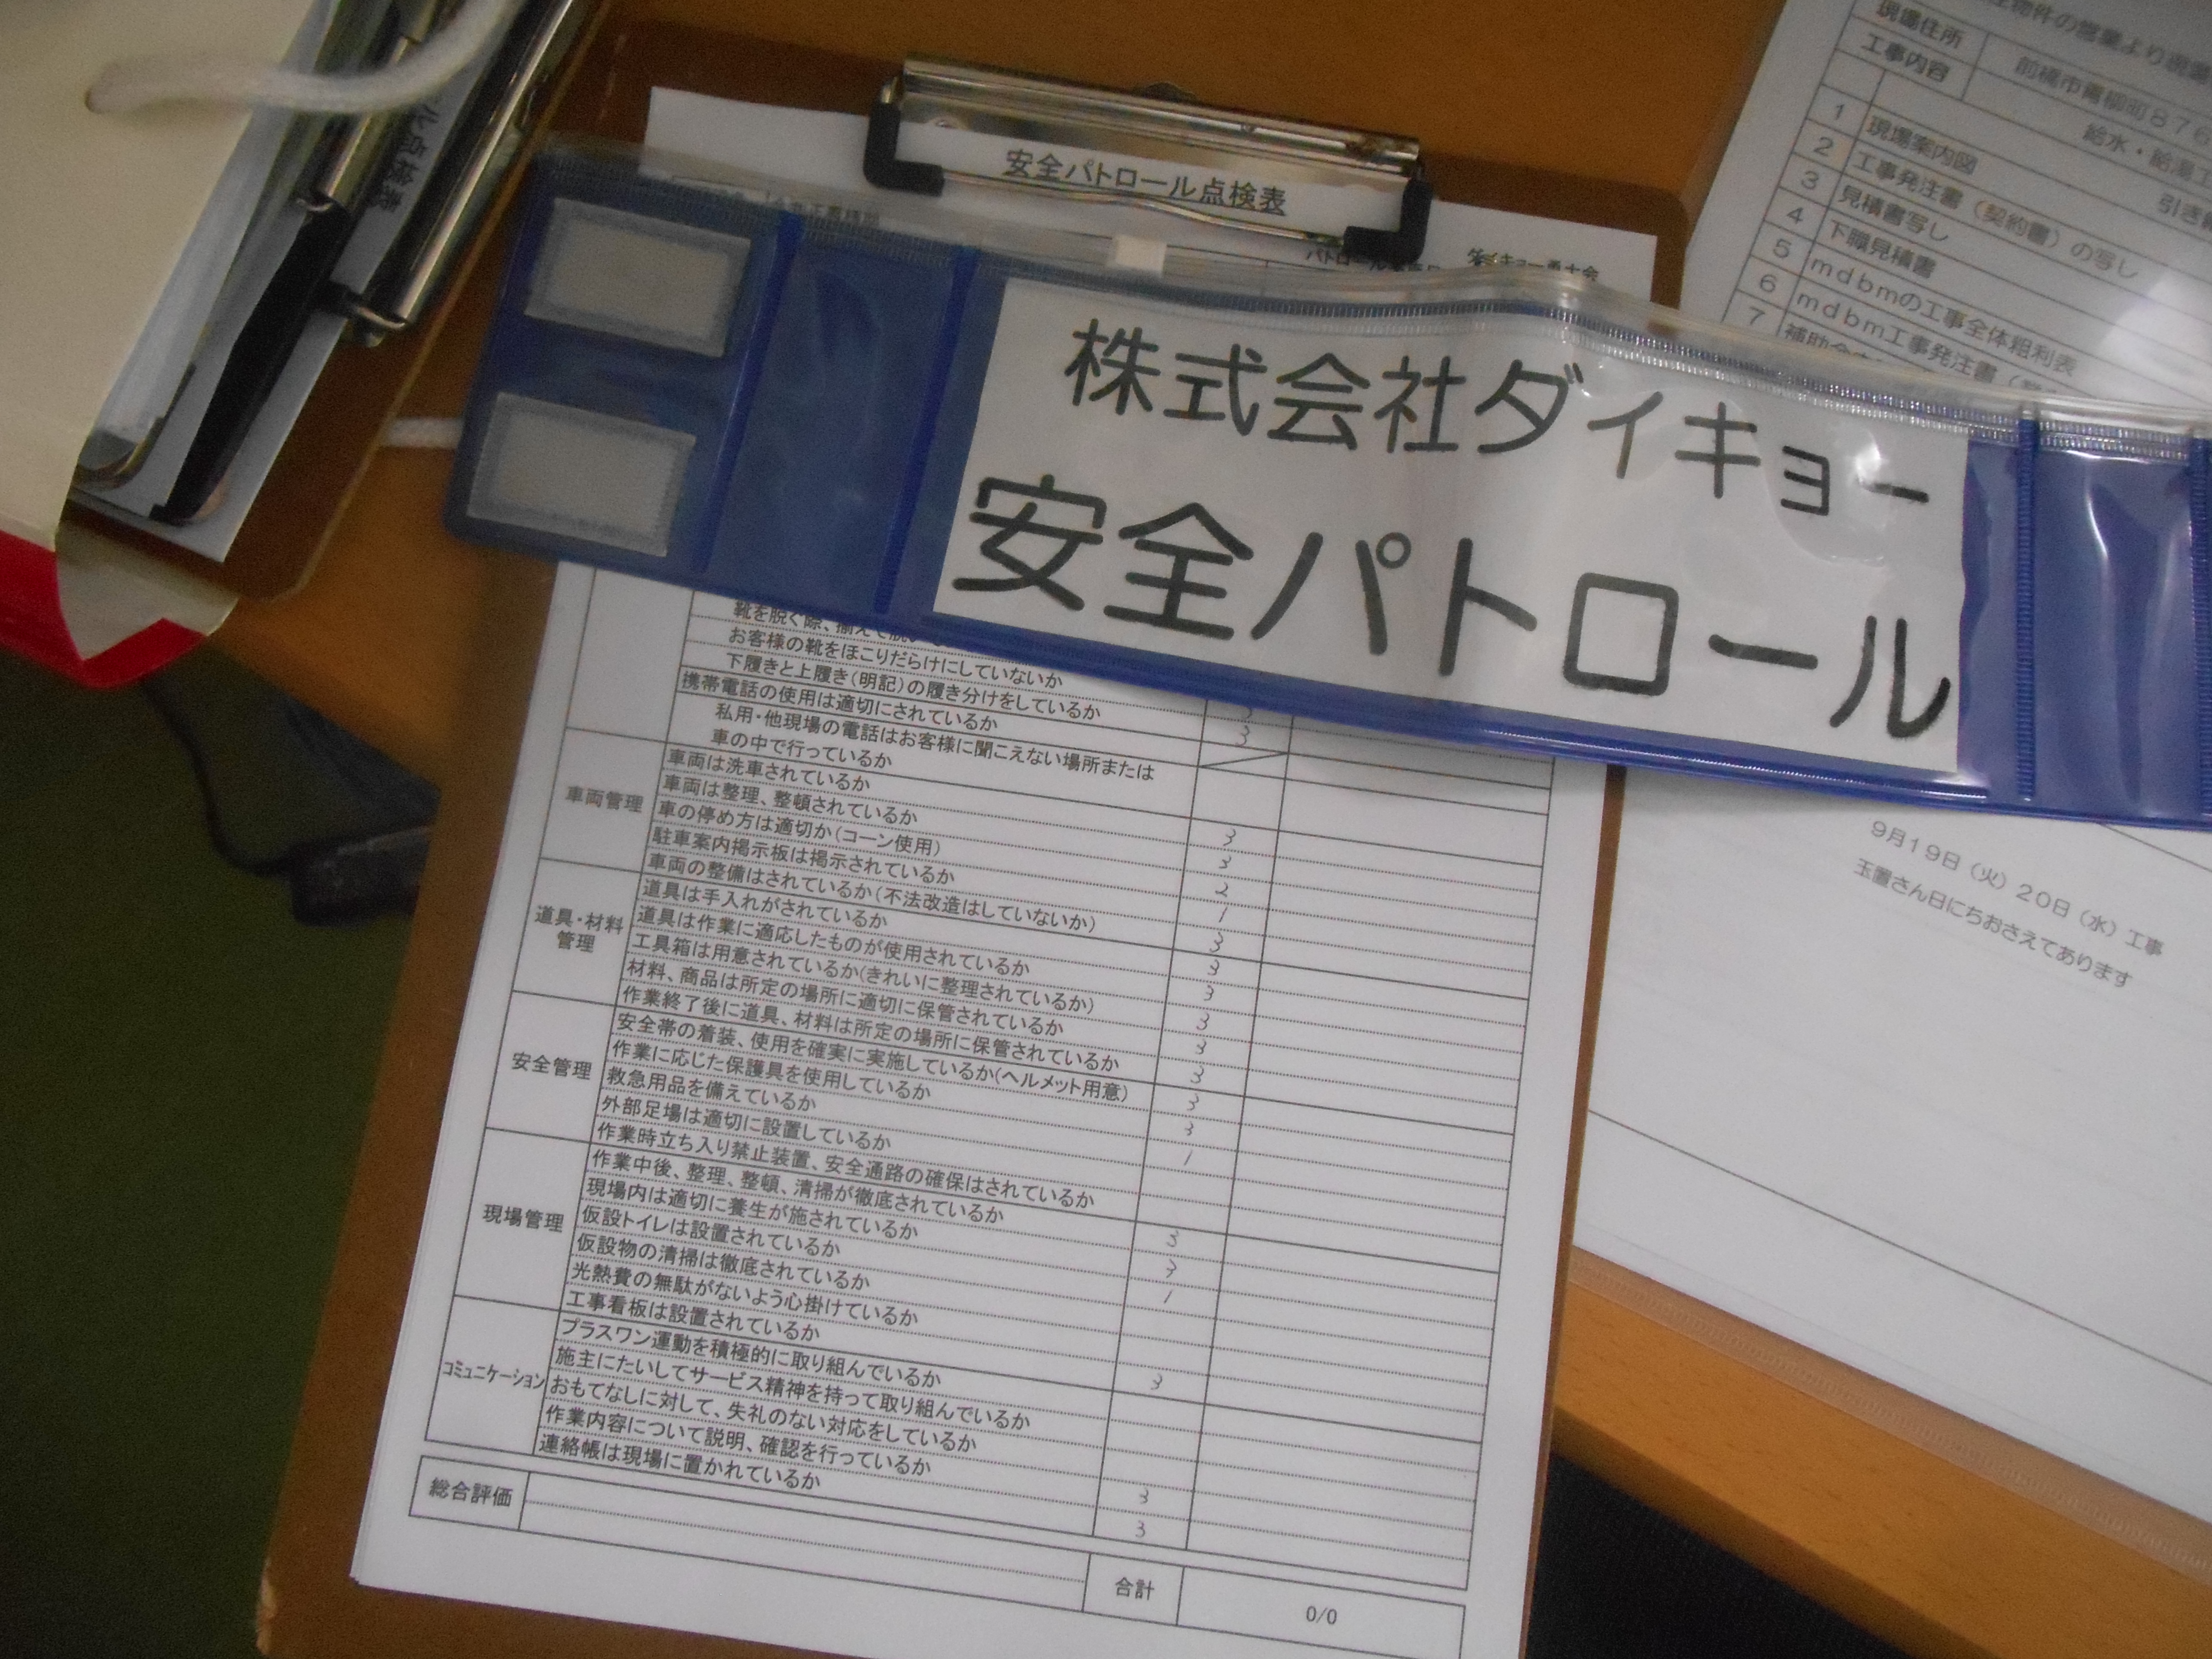 安全パトロール点検表
株式会社ダイキョー
安全パトロール
お客様の靴をほこりだらけにしていないか
下履きと上履き(明記)の履き分けをしているか
携帯電話の使用は適切にされているか 3
私用・他現場の電話はお客様に聞こえない場所または
車の中で行っているか
車両管理
車両は洗車されているか 3
車両は整理、整頓されているか 3
車の停め方は適切か(コーン使用) 2
駐車案内掲示板は掲示されているか 1
車両の整備はされているか(不法改造はしていないか) 3
道具・材料
管理
道具は手入れがされているか 3
道具は作業に適応したものが使用されているか 3
工具箱は用意されているか(きれいに整理されているか) 3
材料、商品は所定の場所に適切に保管されているか 3
作業終了後に道具、材料は所定の場所に保管されているか 3
安全管理
安全帯の着装、使用を確実に実施しているか(ヘルメット用意) 3
作業に応じた保護具を使用しているか 3
救急用品を備えているか 1
外部足場は適切に設置しているか
作業時立ち入り禁止装置、安全通路の確保はされているか
現場管理
作業中後、整理、整頓、清掃が徹底されているか 3
現場内は適切に養生が施されているか 3
仮設トイレは設置されているか 1
仮設物の清掃は徹底されているか
光熱費の無駄がないよう心掛けているか
工事看板は設置されているか 3
コミュニケーション
プラスワン運動を積極的に取り組んでいるか
施主にたいしてサービス精神を持って取り組んでいるか
おもてなしに対して、失礼のない対応をしているか
作業内容について説明、確認を行っているか 3
連絡帳は現場に置かれているか 3
総合評価
合計 0/0
物件の営業より
現場住所 前橋市青柳町876
工事内容 給水・給湯
引き
1 現場案内図
2 工事発注書(契約書)の写し
3 見積書写し
4 下職見積書
5 mdbmの工事全体粗利表
6 mdbm工事発注書(
7 補助金
9月19日(火)20日(水)工事
玉置さん日にちおさえてあります